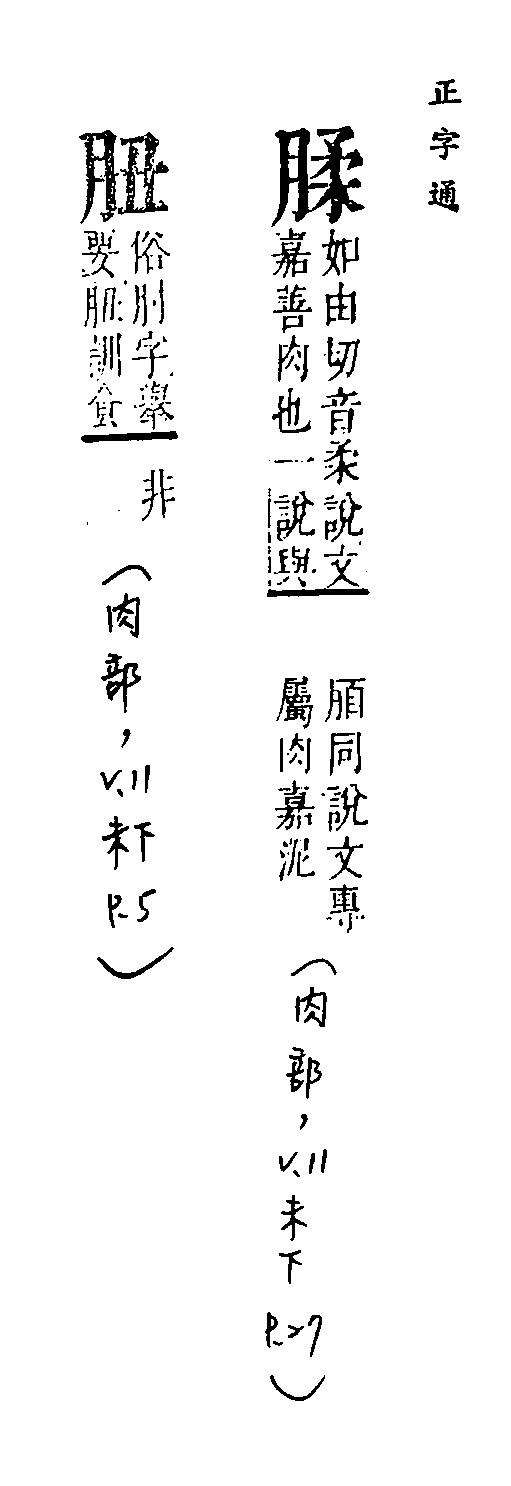 正字通
腬
如由切音柔說文
嘉善肉也一說與
脜同說文專
屬肉嘉泥
(肉部, V.11 未下 P.27)
䏔
俗肘字舉
要䏔訓食
非
(肉部, V.11 未下 P.5)